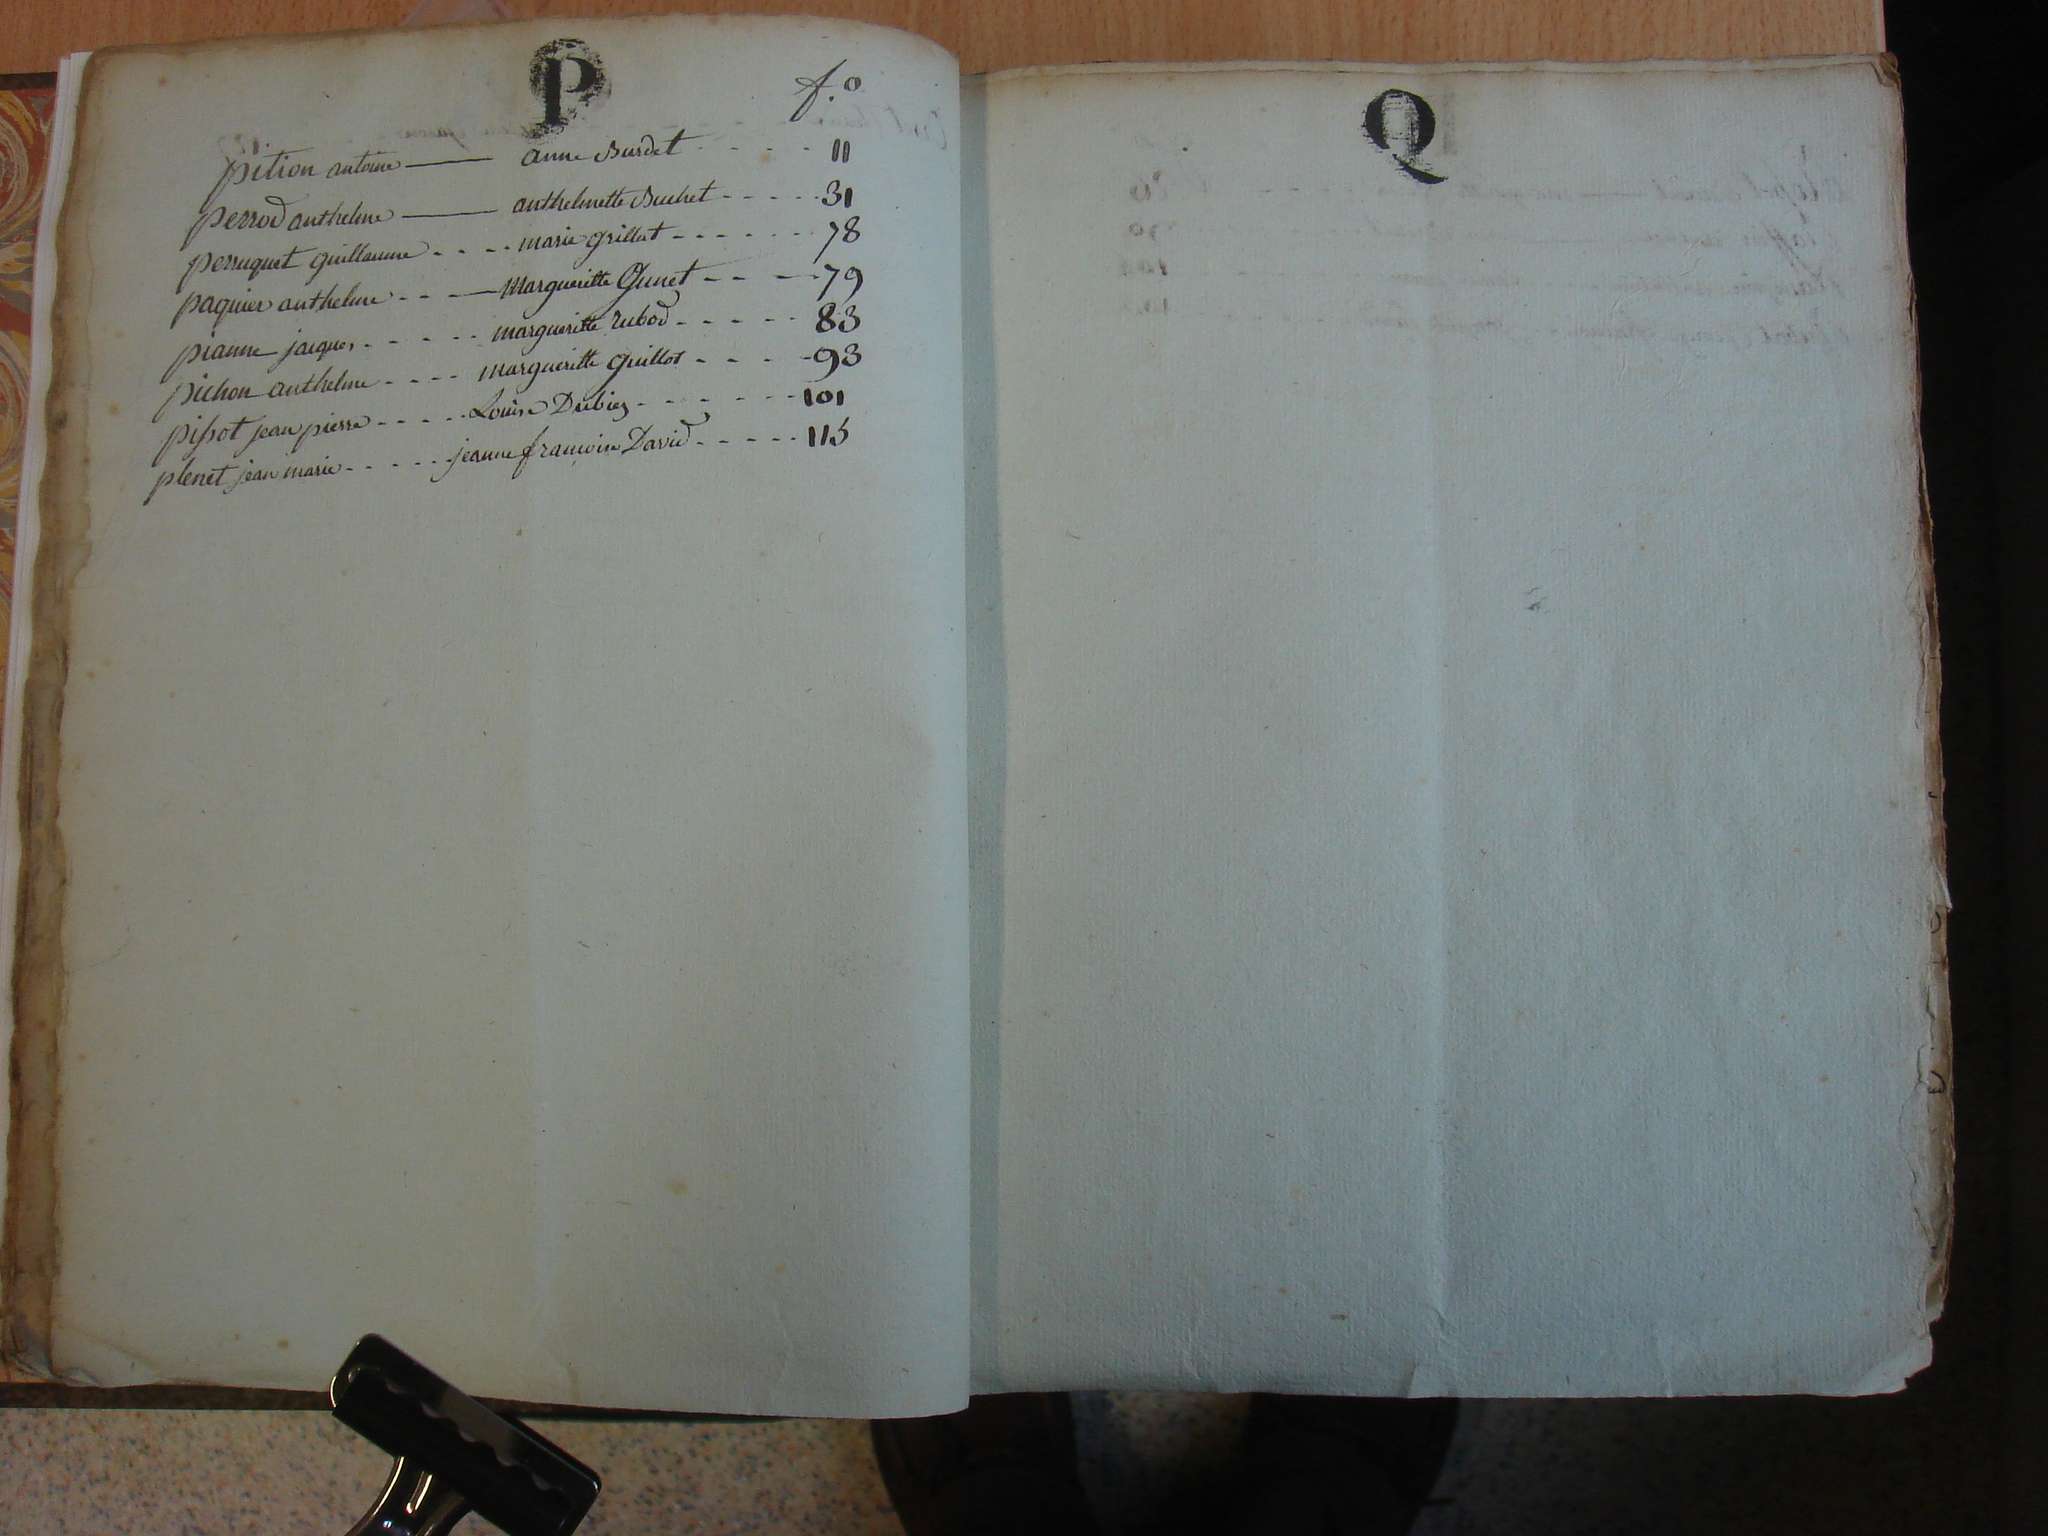 P
f.o
pition antoine —— anne Burdet - - - - - 11
perrod anthelme —— anthelmette Buchet - - - - - 31
perruquet guillaume - - - - marie grillat - - - - - - 78
paquier anthelme - - - — Marguerite Gunet - - - - 79
pianne jacques - - - - - - marguerite rubod - - - - - 83
pichon anthelme - - - - marguerite guillot - - - - - 93
pissot jean pierre - - - - - Louise Dubiez - - - - - - - 101
plenet jean marie - - - - - jeanne françoise David - - - - - 115
Q